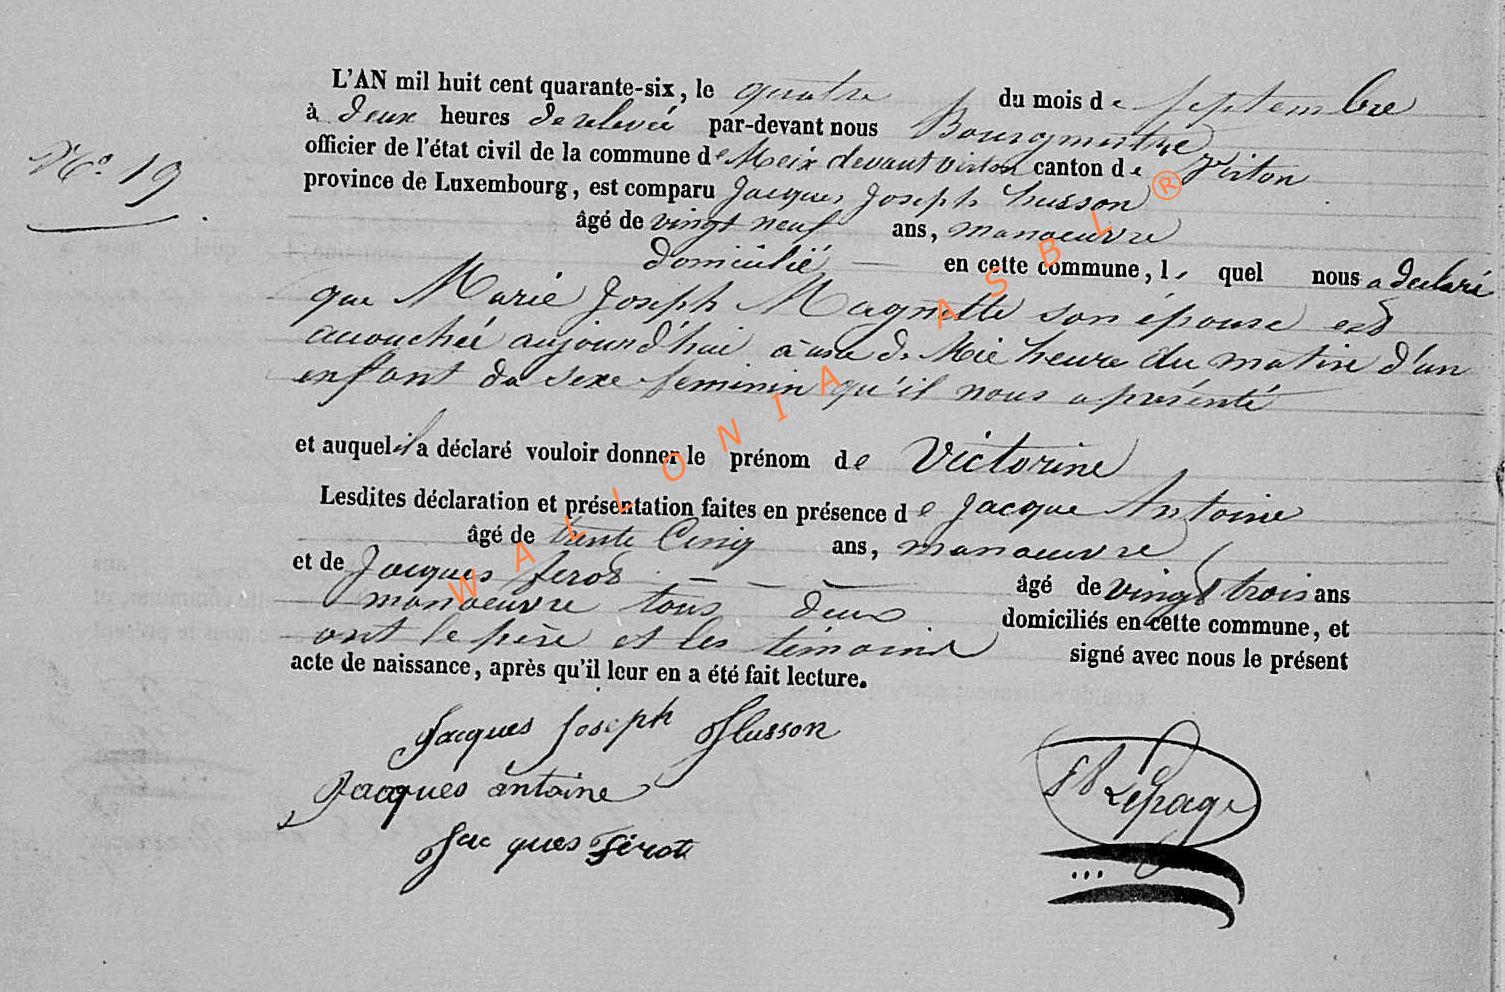 L'AN mil huit cent quarante-six, le quatre du mois de Septembre
à deux heures de relevée par-devant nous Bourgmestre
officier de l'état civil de la commune de Meix devant virton canton de Virton
province de Luxembourg, est comparu Jacques Joseph husson
âgé de vingt neuf ans, manoeuvre
domicilié en cette commune, le quel nous a declaré
que Marie Joseph Magnette son épouse est
accouchée aujourd'hui à une de Mie heure du matin d'un
enfant du sexe feminin qu'il nous a présenté
et auquel il a déclaré vouloir donner le prénom de Victorine
Lesdites déclaration et présentation faites en présence de Jacque Antoine
âgé de trente Cinq ans, manoeuvre
et de Jacques ferot âgé de vingt trois ans
manoeuvre tous deux domiciliés en cette commune, et
ont le père et les témoins signé avec nous le présent
acte de naissance, après qu'il leur en a été fait lecture.
N° 19
Jacques Joseph Husson
Jacques antoine
Jacques Férot
Lepage
WALLONIA ASBL ®